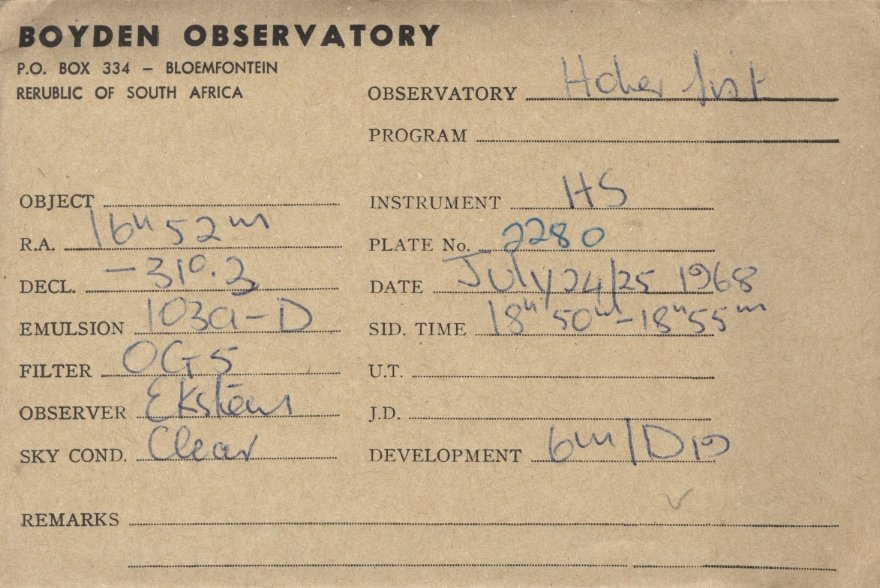 BOYDEN OBSERVATORY
P.O. BOX 334 – BLOEMFONTEIN
RERUBLIC OF SOUTH AFRICA
OBSERVATORY Hoher list
PROGRAM
OBJECT
INSTRUMENT HS
R.A. 16h 52m
PLATE No. 2280
DECL. –31°.3
DATE July 24/25 1968
EMULSION 103a–D
SID. TIME 18h 50m–18h 55m
FILTER OG5
U.T.
OBSERVER Eksteen
J.D.
SKY COND. Clear
DEVELOPMENT 6m/D19
REMARKS